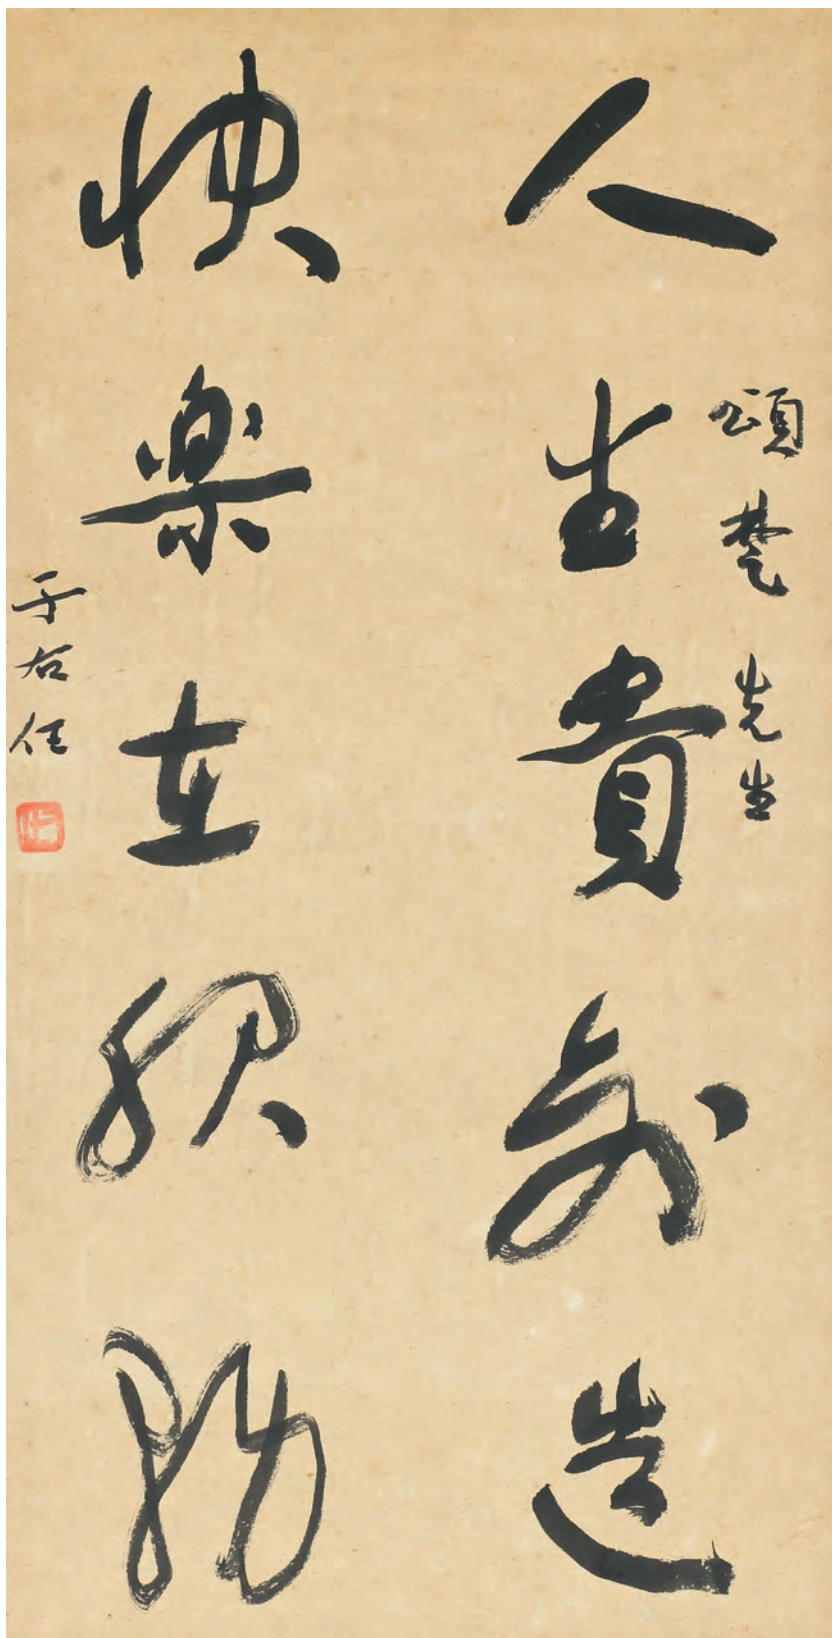 頌楚先生
人生貴創造
快樂在服務
于右任